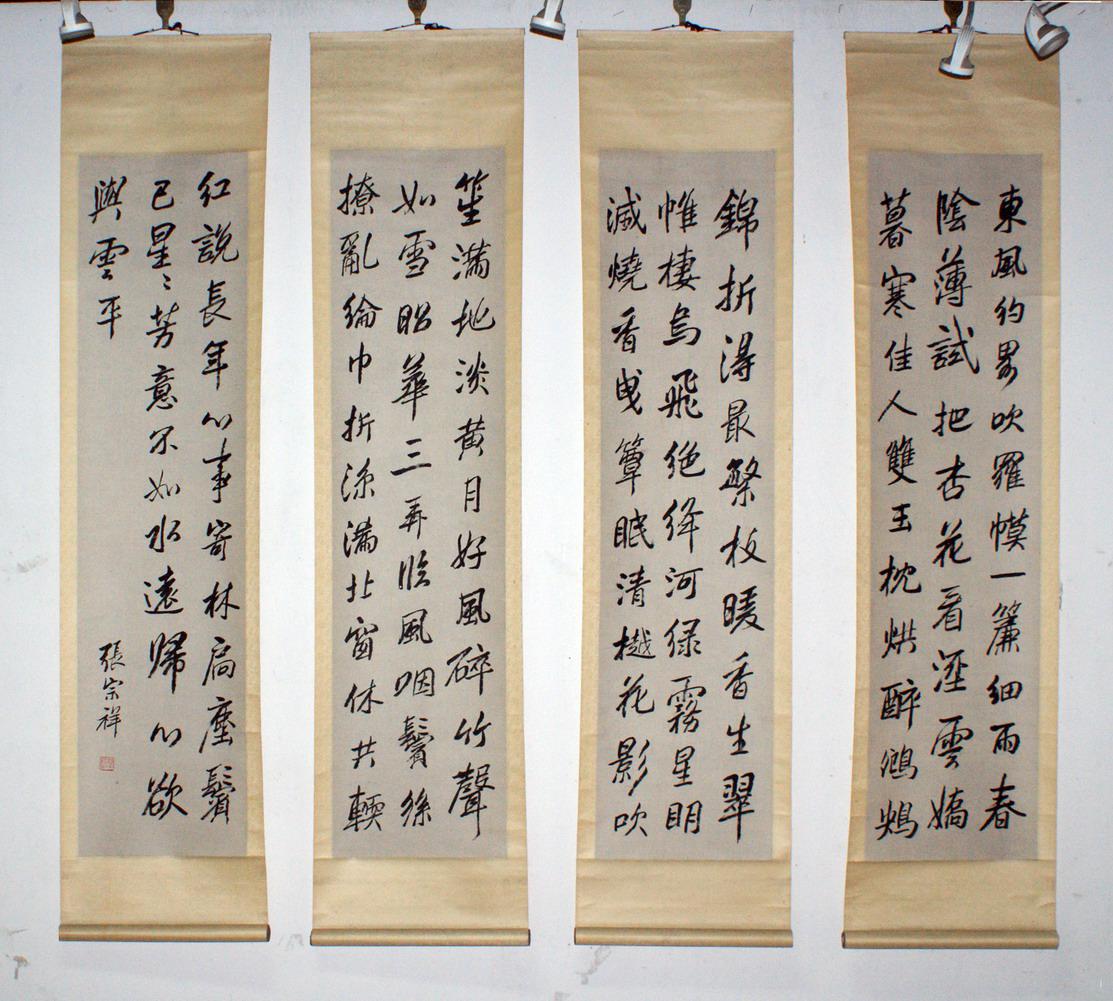 東風約畧吹羅幙一簾細雨春
陰薄試把杏花看溼雲嬌
暮寒佳人雙玉枕烘醉鴛鴦
錦折得最繁枝暖香生翠
帷棲烏飛絕絳河綠霧星明
滅燒香曳簟眠清樾花影吹
笙滿地淡黃月好風碎竹聲
如雪昭華三弄臨風咽鬢絲
撩亂綸巾折涼滿北窗休共輭
紅說長年心事寄林扃塵鬢
已星〻芳意不如水遠歸心欲
與雲平
張宗祥